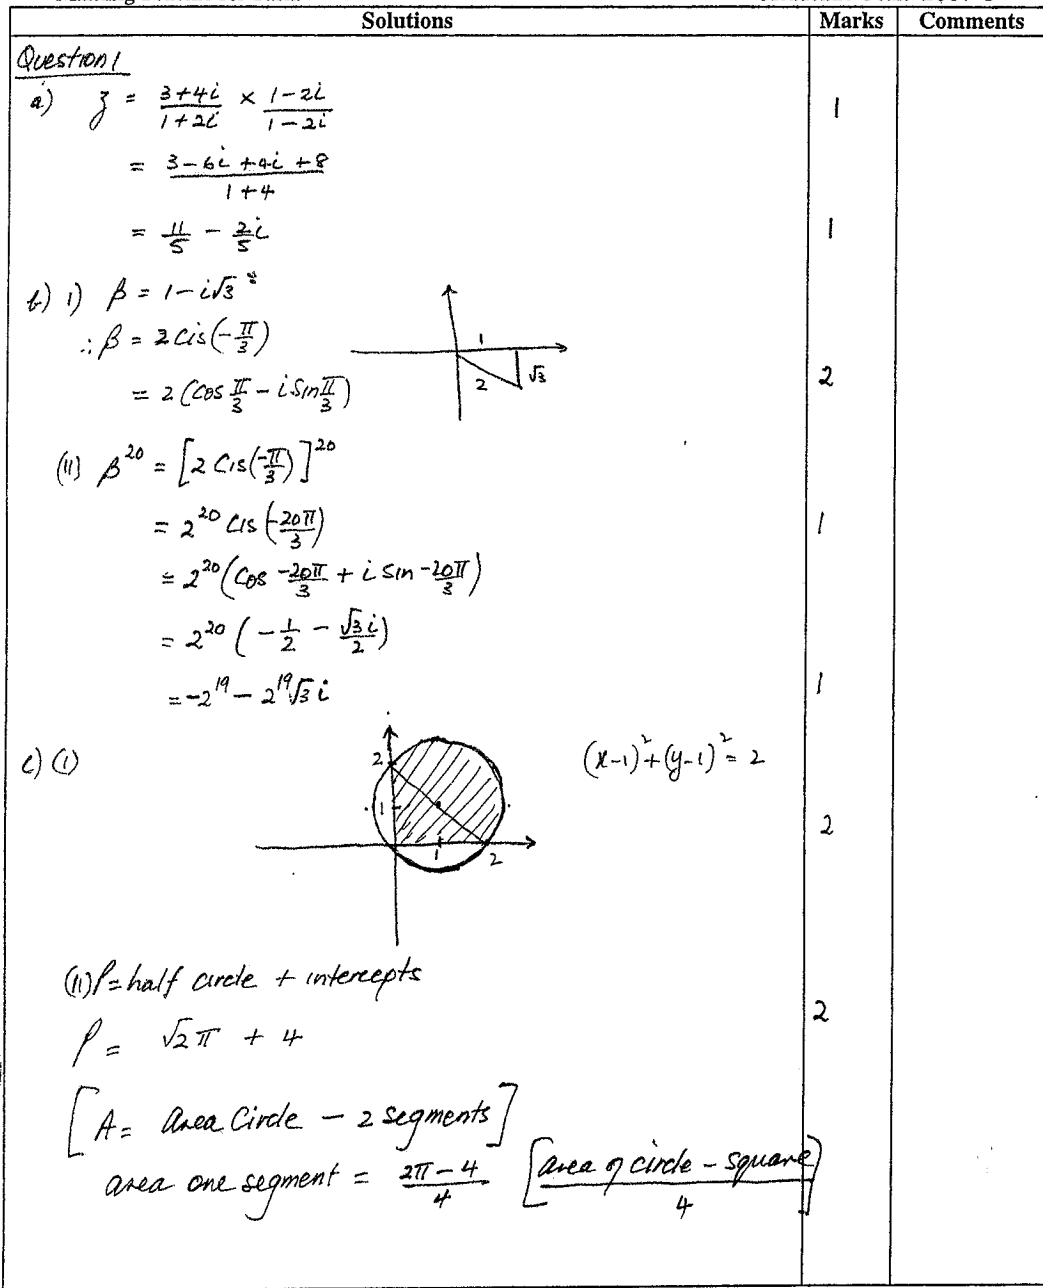 Solutions Marks Comments
Question 1
a) z = (3+4i)/(1+2i) × (1-2i)/(1-2i) 1
= (3-6i+4i+8)/(1+4)
= 11/5 - 2/5 i 1
b) i) β = 1-i√3
∴ β = 2 Cis(-π/3)
= 2(Cos π/3 - i Sin π/3) 2
1
2
√3
(ii) β^20 = [2 Cis(-π/3)]^20
= 2^20 Cis(-20π/3) 1
= 2^20 (Cos -20π/3 + i Sin -20π/3)
= 2^20 (-1/2 - √3 i/2)
= -2^19 - 2^19 √3 i 1
c) (i) (x-1)^2+(y-1)^2 = 2 2
2
1
1
2
(ii) P = half circle + intercepts
P = √2 π + 4 2
[A = Area Circle - 2 segments]
area one segment = (2π-4)/4 [(area of circle - square)/4]